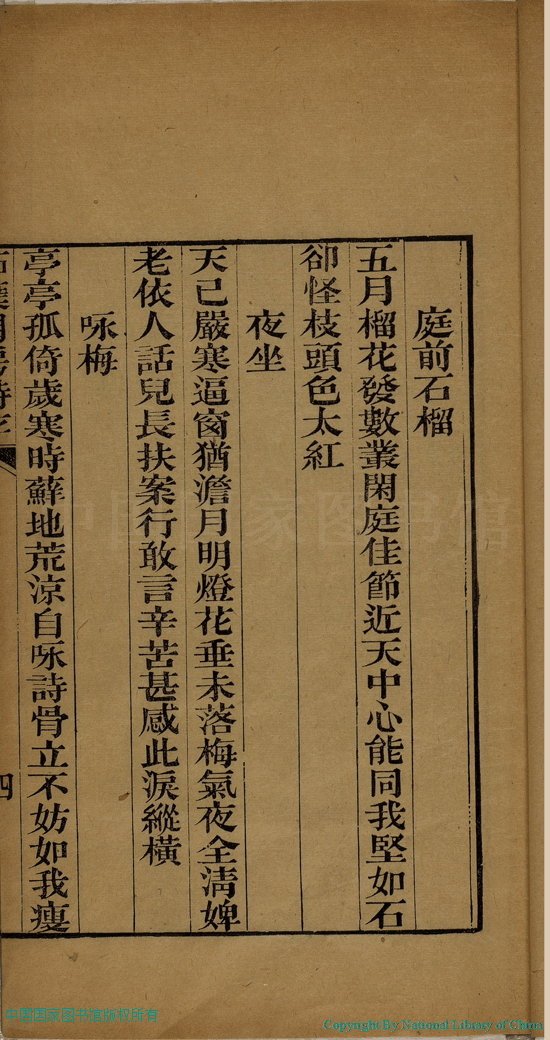 庭前石榴
五月榴花發數叢閑庭佳節近天中心能同我堅如石
卻怪枝頭色太紅
夜坐
天已嚴寒逼窗猶澹月明燈花垂未落梅氣夜全淸婢
老依人話兒長扶案行敢言辛苦甚感此淚縱橫
咏梅
亭亭孤倚歲寒時蘇地荒涼自咏詩骨立不妨如我瘦
四
中国国家图书馆版权所有
Copyright By National Library of China